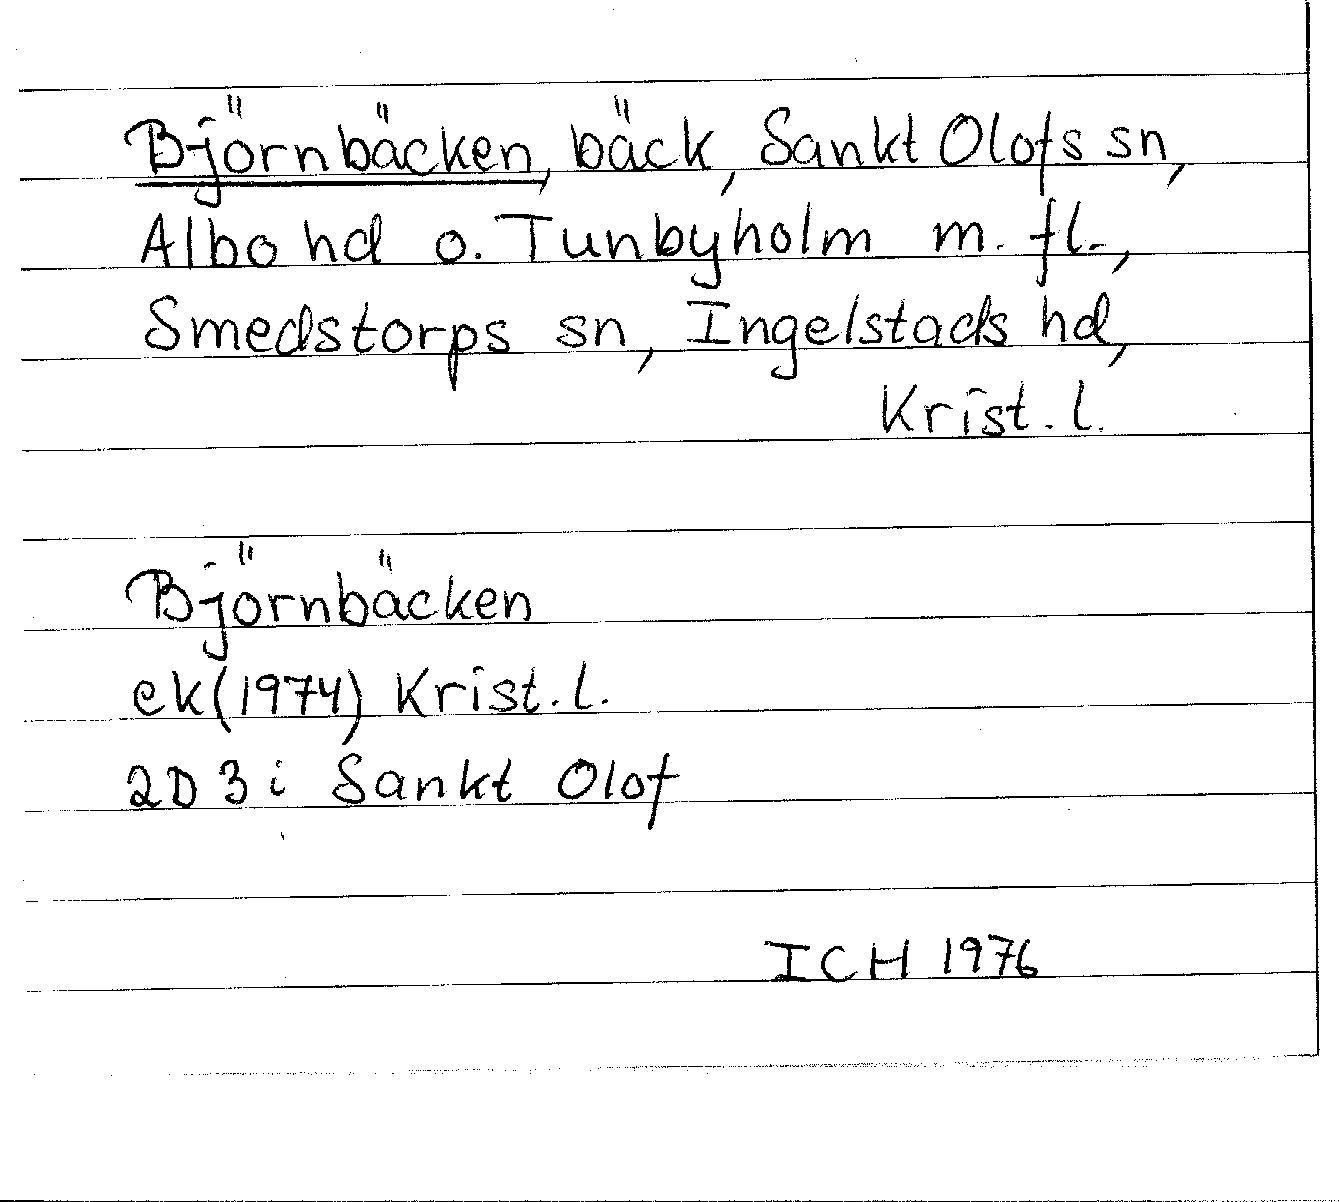 Björnbäcken, bäck, Sankt Olofs sn,
Albo hd o. Tunbyholm m. fl.,
Smedstorps sn, Ingelstads hd,
Krist. l.
Björnbäcken
ek(1974) Krist. l.
2D 3i Sankt Olof
ICH 1976